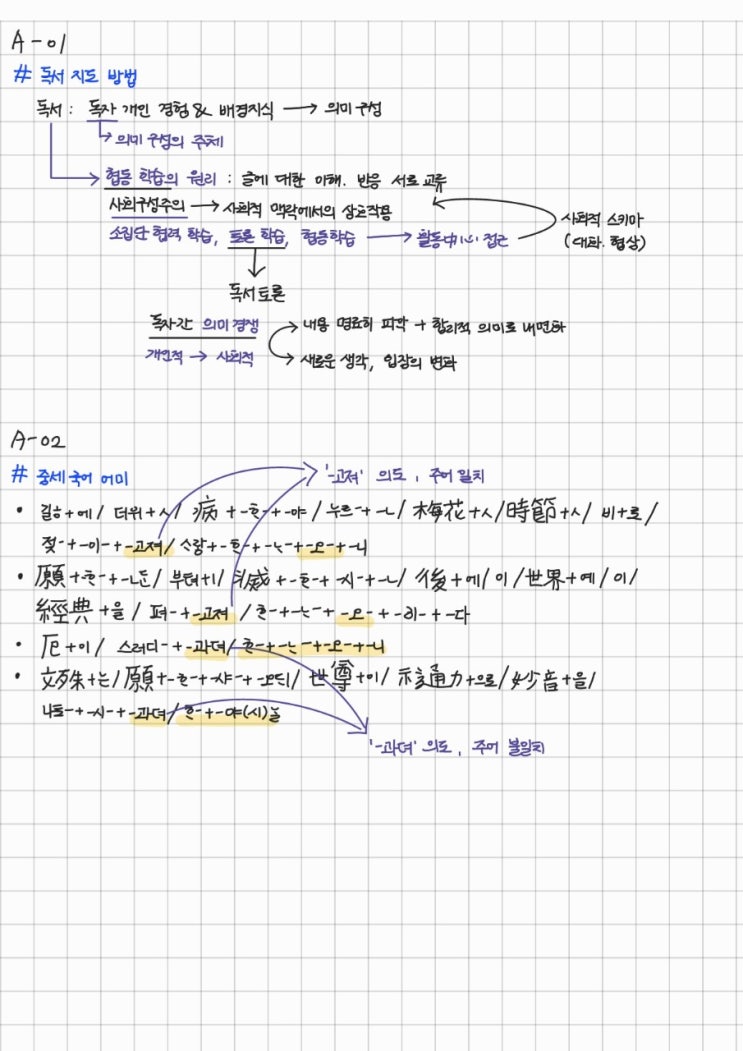 A-01
# 독서 지도 방법
독서 : 독자 개인 경험 & 배경지식 → 의미 구성
→ 의미 구성의 주체
협동 학습의 원리 : 글에 대한 이해. 반응 서로 교류
사회구성주의 → 사회적 맥락에서의 상호작용
소집단 협력 학습, 토론 학습, 협동학습 → 활동中心 접근
사회적 스키마
(대화. 협상)
독서 토론
독자간 의미 경쟁
개인적 → 사회적
내용 명료히 파악 + 합리적 의미로 내면화
새로운 생각, 입장의 변화
A-02
# 중세국어 어미
'-고져' 의도, 주어 일치
• 길ㅎ+에/ 더위+ㅅ/ 病+-ᄒᆞ-+-야/ 누르-+-ㄴ/ 梅花+ㅅ/ 時節+ㅅ/ 비+로/
젖-+-이-+-고져/ ᄉᆞ랑+-ᄒᆞ-+-ᄂᆞ-+-오-+-니
• 願+-ᄒᆞ-+-ㄴᄃᆞᆫ/ 부텨+ㅣ/ 滅+-ᄒᆞ-+-시-+-ㄴ/ 後+에/ 이/ 世界+예/ 이/
經典+을/ 펴-+-고져/ ᄒᆞ-+-ᄂᆞ-+-오-+-ㅣ-+-다
• 厄+이/ 스러디-+-과뎌/ ᄒᆞ-+-ᄂᆞ-+-오-+-니
• 文殊+는/ 願+-ᄒᆞ-+-샤-+-오ᄃᆡ/ 世尊+이/ 神通力+으로/ 妙音+을/
나토-+-시-+-과뎌/ ᄒᆞ-+-야(시)ᄂᆞᆯ
'-과뎌' 의도, 주어 불일치